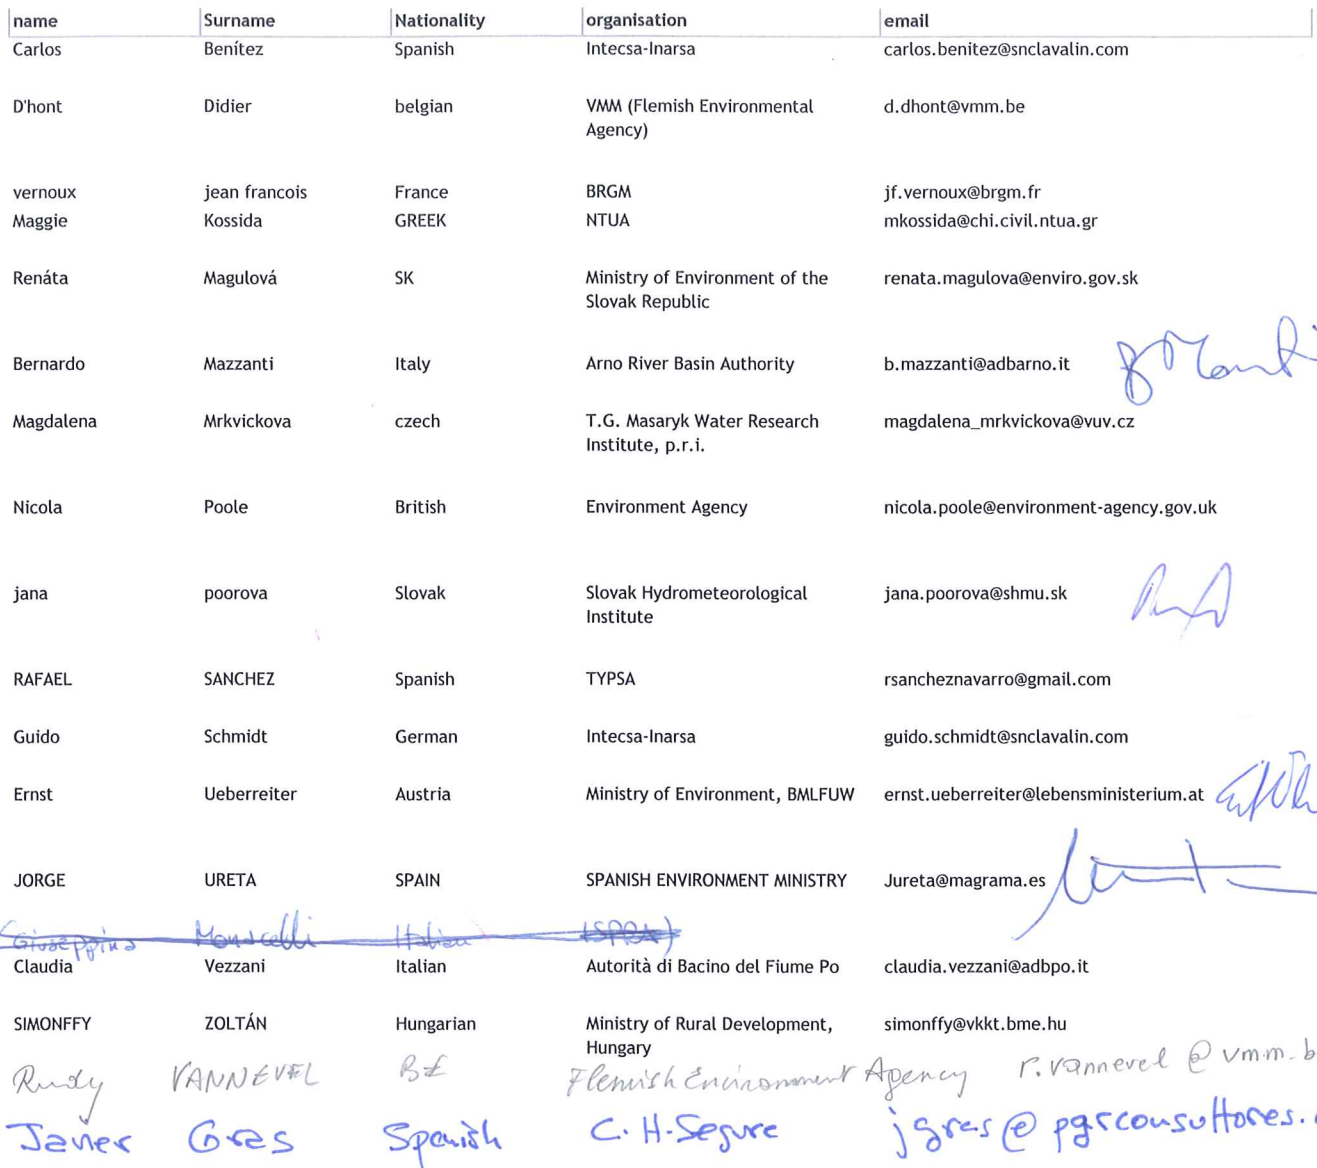 name Surname Nationality organisation email
Carlos Benítez Spanish Intecsa-Inarsa carlos.benitez@snclavalin.com
D'hont Didier belgian VMM (Flemish Environmental d.dhont@vmm.be
Agency)
vernoux jean francois France BRGM jf.vernoux@brgm.fr
Maggie Kossida GREEK NTUA mkossida@chi.civil.ntua.gr
Renáta Magulová SK Ministry of Environment of the renata.magulova@enviro.gov.sk
Slovak Republic
Bernardo Mazzanti Italy Arno River Basin Authority b.mazzanti@adbarno.it
Magdalena Mrkvickova czech T.G. Masaryk Water Research magdalena_mrkvickova@vuv.cz
Institute, p.r.i.
Nicola Poole British Environment Agency nicola.poole@environment-agency.gov.uk
jana poorova Slovak Slovak Hydrometeorological jana.poorova@shmu.sk
Institute
RAFAEL SANCHEZ Spanish TYPSA rsancheznavarro@gmail.com
Guido Schmidt German Intecsa-Inarsa guido.schmidt@snclavalin.com
Ernst Ueberreiter Austria Ministry of Environment, BMLFUW ernst.ueberreiter@lebensministerium.at
JORGE URETA SPAIN SPANISH ENVIRONMENT MINISTRY Jureta@magrama.es
Giuseppina Monacelli Italian
Claudia Vezzani Italian Autorità di Bacino del Fiume Po claudia.vezzani@adbpo.it
SIMONFFY ZOLTÁN Hungarian Ministry of Rural Development, simonffy@vkkt.bme.hu
Hungary
Rudy VANNEVEL BE Flemish Environment Agency r.vannevel@vmm.b
Javier Gras Spanish C.H-Segura jgras@pgrconsultores.